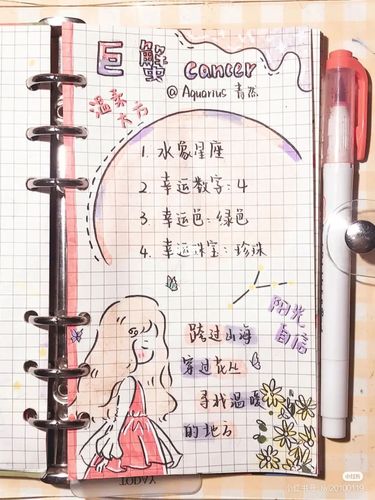 巨蟹 cancer
@ Aquarius 青然
温柔
大方
1. 水象星座
2 幸运数字：4
3. 幸运色：绿色
4. 幸运珠宝：珍珠
阳光
自信
跨过山海
穿过花从
寻找温暖
的地方
YAGOT
小红书
小红书号